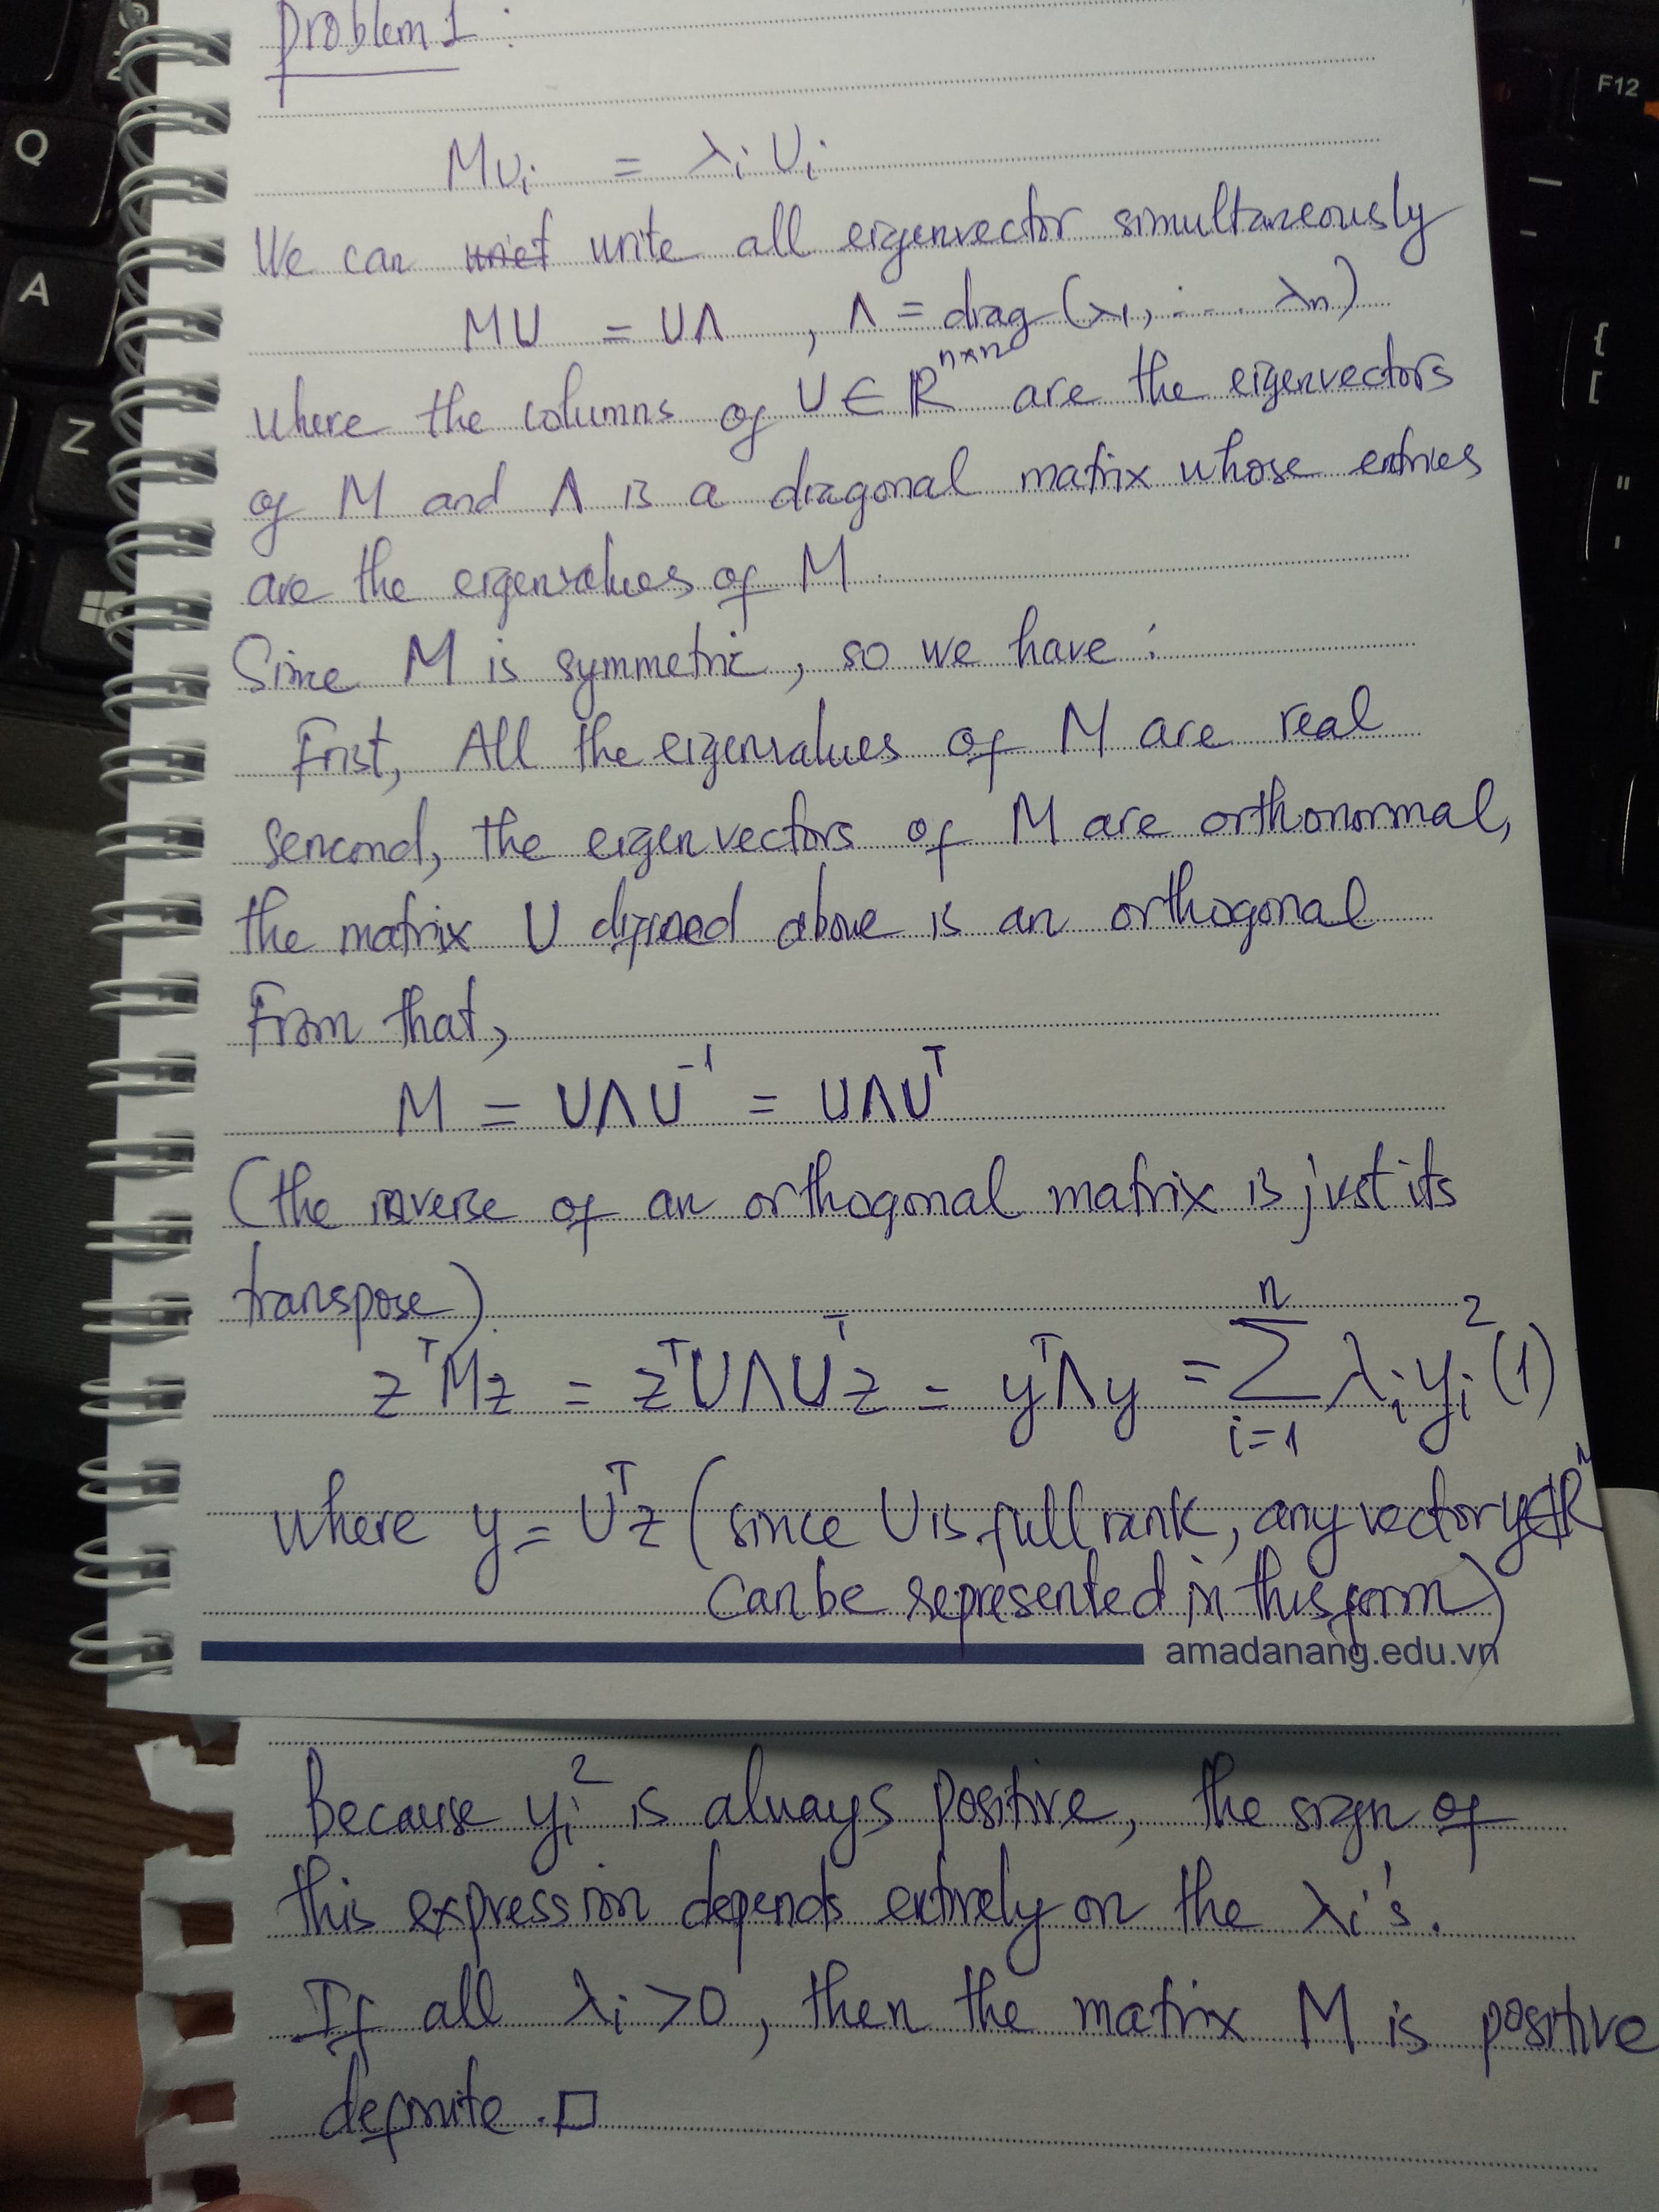 Problem 1 :
Mυi = λi Ui
We can write all eigenvector simultaneously
MU = UΛ , Λ = diag (λ1, .... λn)
where the columns of U ∈ R^{n×n} are the eigenvectors
of M and Λ is a diagonal matrix whose entries
are the eigenvalues of M.
Since M is symmetric, so we have :
Frist, All the eigenvalues of M are real
sencond, the eigenvectors of M are orthonormal,
the matrix U difined above is an orthogonal
From that,
M = UΛU^{-1} = UΛU^T
(the inverse of an orthogonal matrix is just its
transpose).
z^T Mz = z^T UΛU^T z = y^T Λy = ∑_{i=1}^{n} λi yi^2 (1)
where y = U^T z (since U is full rank, any vector y ∈ R^n
can be represented in this form)
amadanang.edu.vn
Because yi^2 is always positive, the sign of
this expression depends entirely on the λi's.
If all λi > 0, then the matrix M is positive
definite. □
Q
A
Z
F12
{
[
"
'